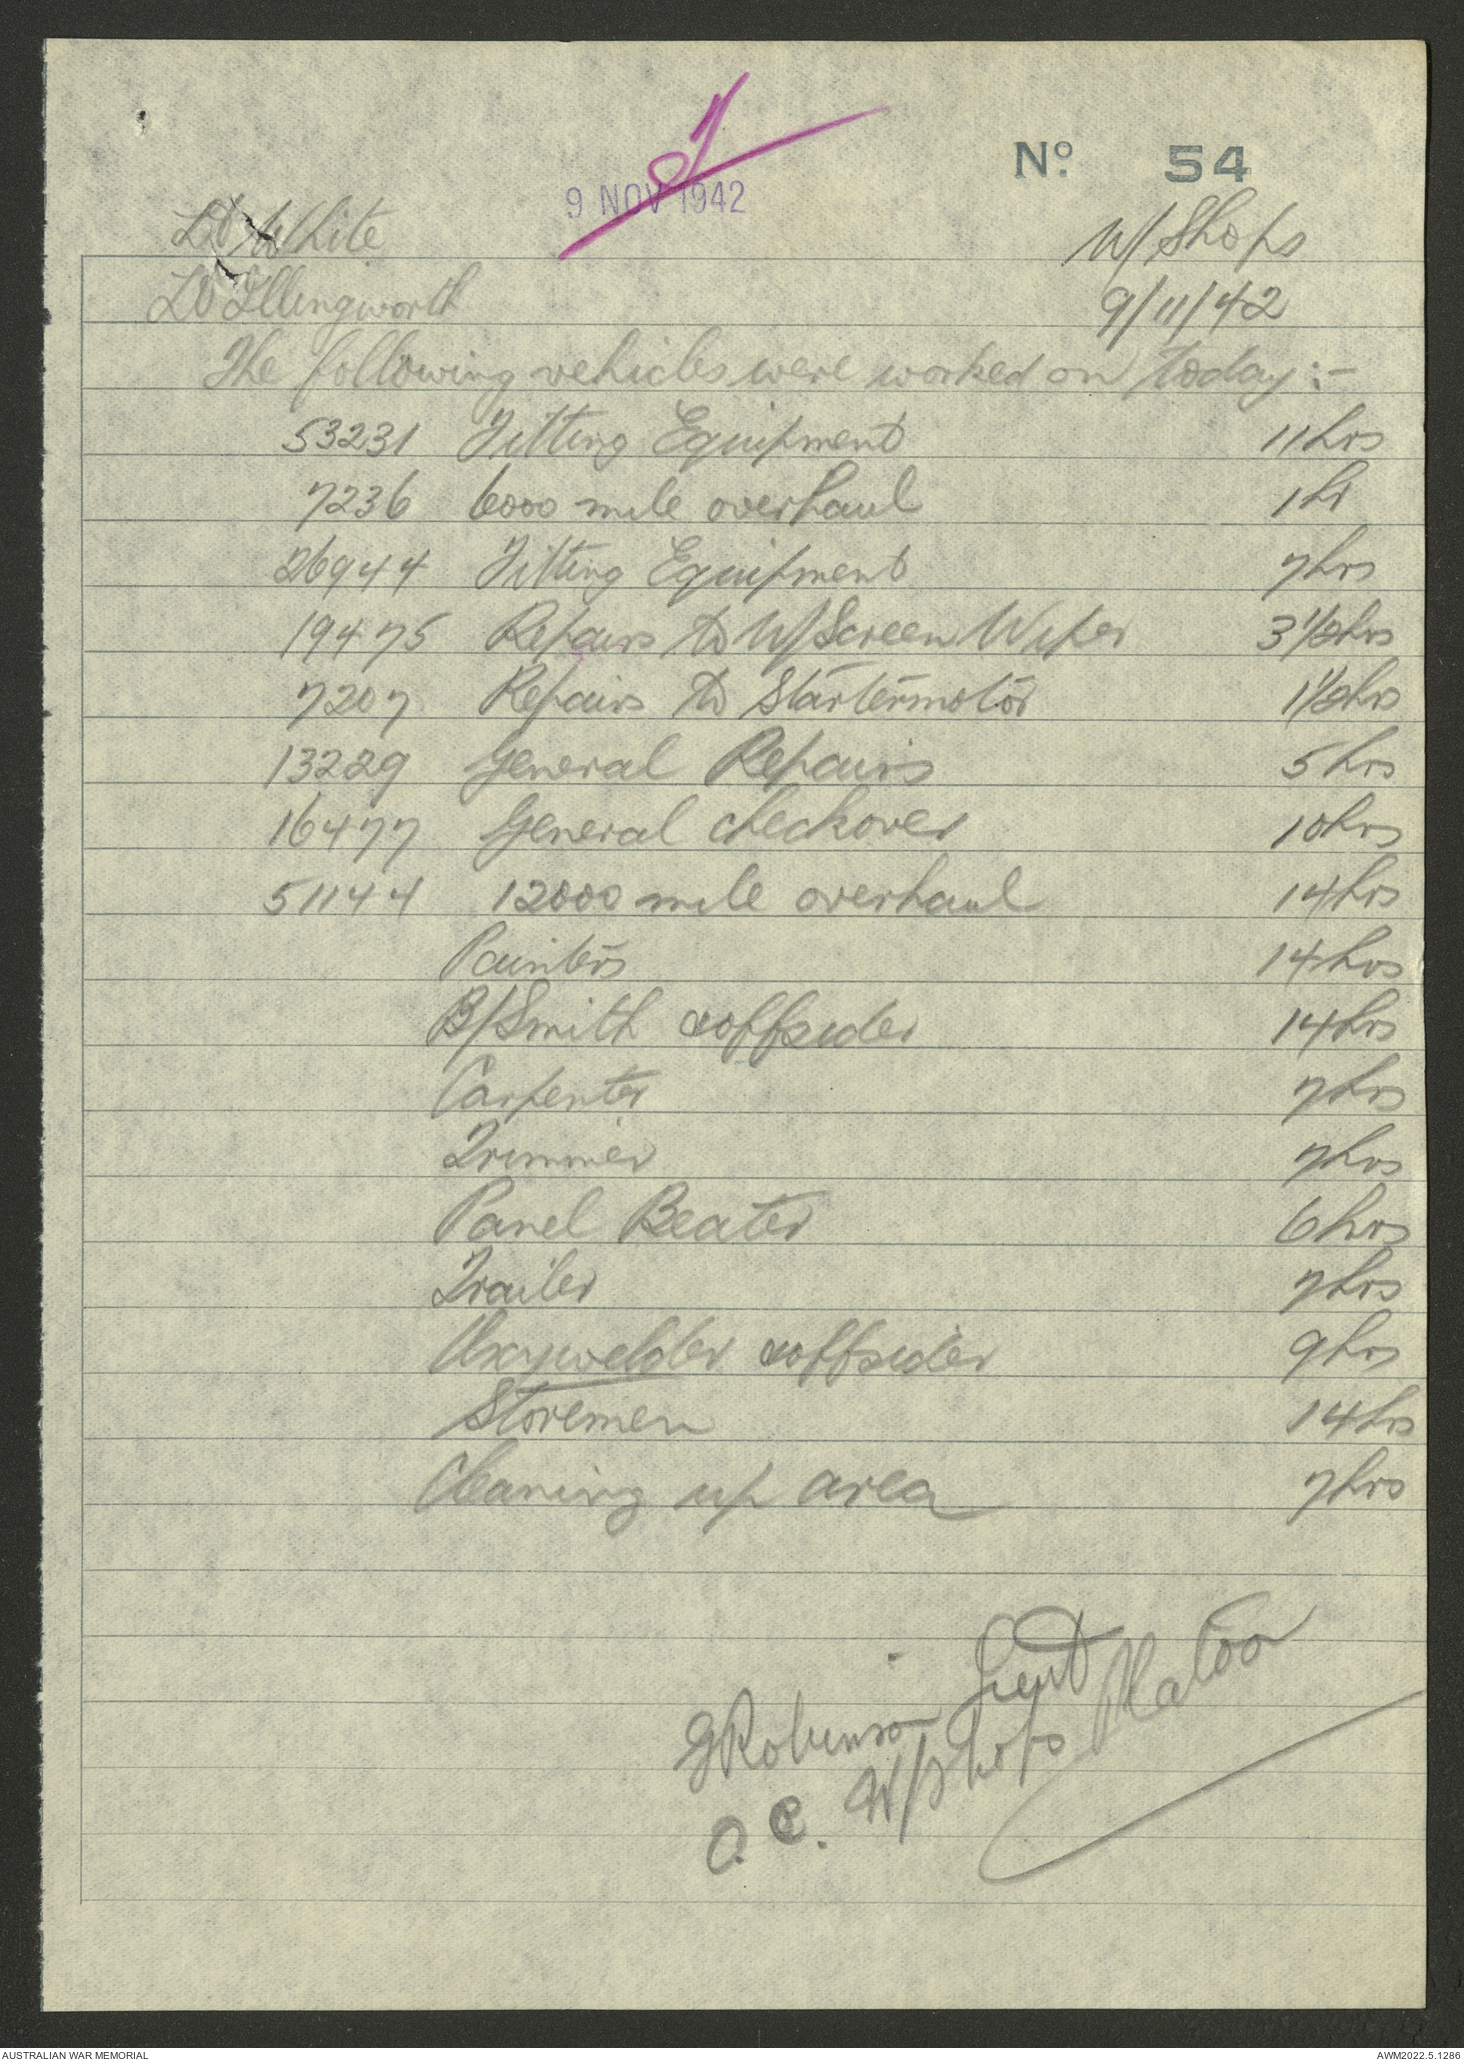 No. 54
9 NOV 1942
Lt White W/Shops
Lt Illingworth 9/11/42
The following vehicles were worked on today :-
53231 Fitting Equipment 11hrs
7236 6000 mile overhaul 1hr
26944 Fitting Equipment 7hrs
19475 Repairs to W/Screen Wiper 3 1/2hrs
7207 Repairs to Startermotor 1 1/2hrs
13229 General Repairs 5hrs
16477 General checkover 10hrs
51144 12000 mile overhaul 14hrs
Painters 14hrs
B/Smith & offsider 14hrs
Carpenter 7hrs
Trimmer 7hrs
Panel Beater 6hrs
Trailer 7hrs
Oxywelder & offsider 9hrs
Storemen 14hrs
Cleaning up area 7hrs
G Robinson Lieut
O.C. W/Shops Platoon
AUSTRALIAN WAR MEMORIAL AWM2022.5.1286